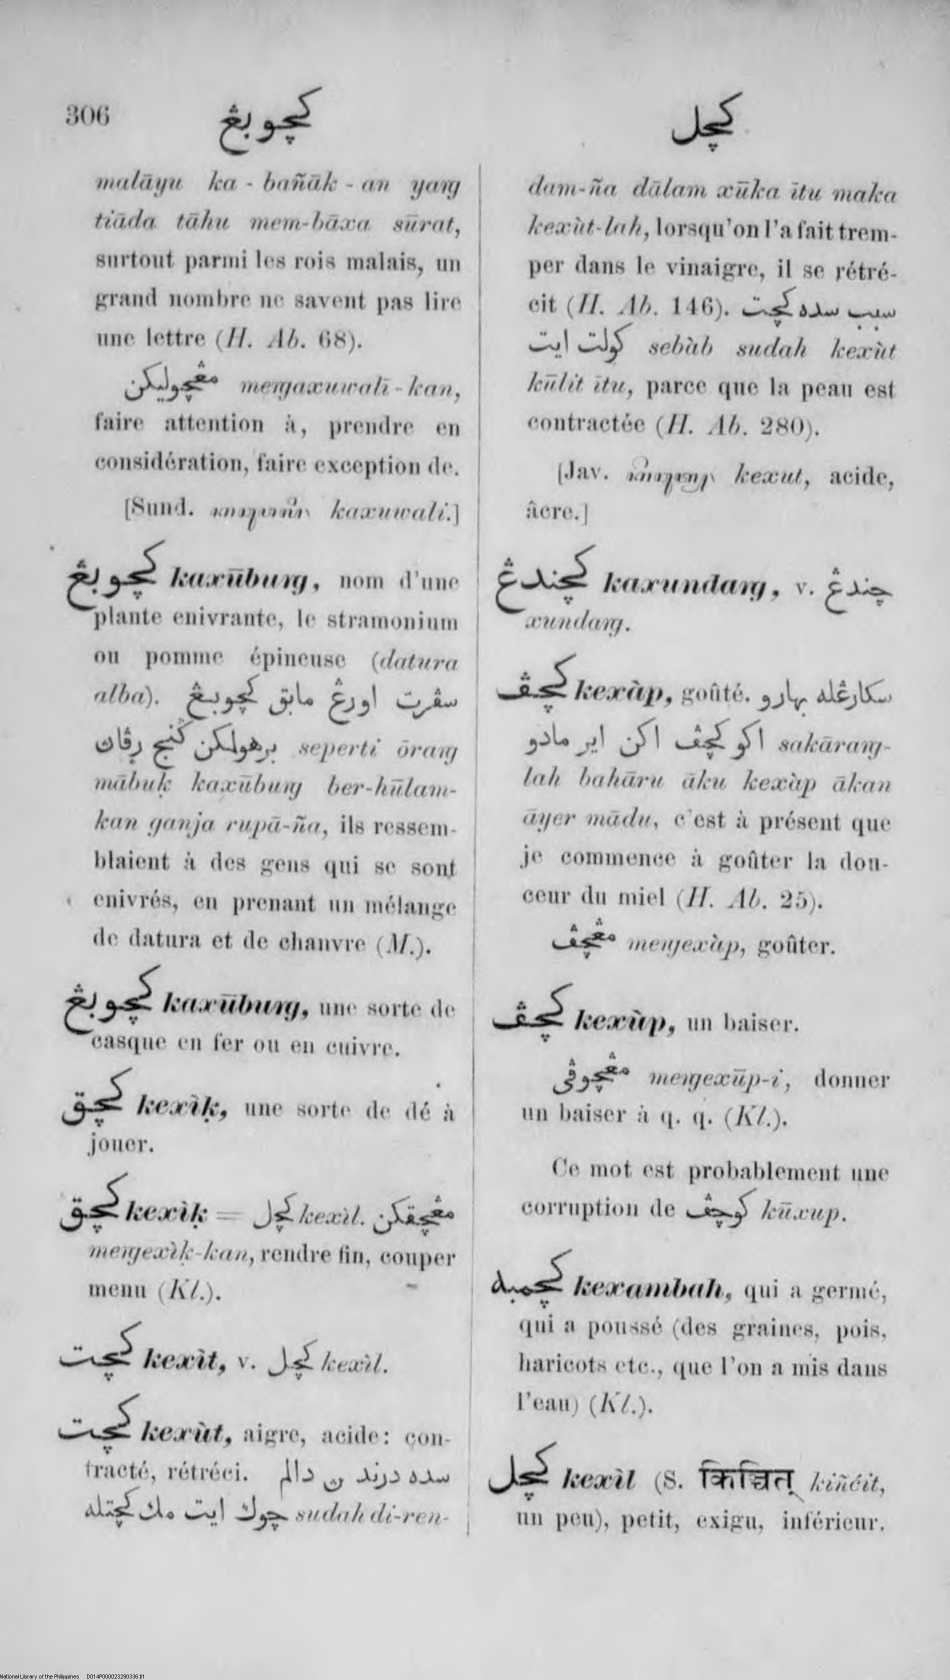 306
کچوبڠ
کچل
malāyu ka-bañāk-an yaṃg
tiāda tāhu mem-bāxa sūrat,
surtout parmi les rois malais, un
grand nombre ne savent pas lire
une lettre (H. Ab. 68).
مڠچوليکن meṃgaxuwalī-kan,
faire attention à, prendre en
considération, faire exception de.
[Sund. kaxuwali.]
کچوبڠ kaxūbuṃg, nom d'une
plante enivrante, le stramonium
ou pomme épineuse (datura
alba). سڤرت اورڠ مابق کچوبڠ
برهولمکن گنج رڤاڽ seperti ōraṃg
mābuḳ kaxūbuṃg ber-hūlam-
kan ganja rupā-ña, ils ressem-
blaient à des gens qui se sont
enivrés, en prenant un mélange
de datura et de chanvre (M.).
کچوبڠ kaxūbuṃg, une sorte de
casque en fer ou en cuivre.
کچق kexìḳ, une sorte de dé à
jouer.
کچق kexìḳ = کچل kexìl. مڠچقکن
meṃgexìḳ-kan, rendre fin, couper
menu (Kl.).
کچت kexìt, v. کچل kexìl.
کچت kexùt, aigre, acide: con-
tracté, rétréci. سده درندمڽ دالم
چوک ايت مک کچتله sudah di-ren-
dam-ña dālam xūka ītu maka
kexùt-lah, lorsqu'on l'a fait trem-
per dans le vinaigre, il se rétré-
cit (H. Ab. 146). سبب سده کچت
کولت ايت sebàb sudah kexùt
kūlit ītu, parce que la peau est
contractée (H. Ab. 280).
[Jav. kexut, acide,
âcre.]
کچندڠ kaxundaṃg, v. چندڠ
xundaṃg.
کچڤ kexàp, goûté. سکارڠله بهارو
اکو کچڤ اکن اير مادو sakāraṃg-
lah bahāru āku kexàp ākan
āyer mādu, c'est à présent que
je commence à goûter la dou-
ceur du miel (H. Ab. 25).
مڠچڤ meṃgexàp, goûter.
کچڤ kexùp, un baiser.
مڠچوڤي meṃgexūp-i, donner
un baiser à q. q. (Kl.).
Ce mot est probablement une
corruption de کوچڤ kūxup.
کچمبه kexambah, qui a germé,
qui a poussé (des graines, pois,
haricots etc., que l'on a mis dans
l'eau) (Kl.).
کچل kexìl (S. किञ्चित् kiñćit,
un peu), petit, exigu, inférieur.
National Library of the Philippines